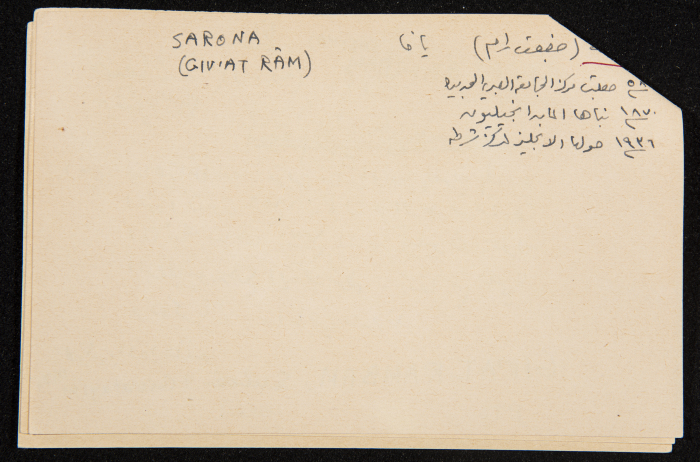 SARONA
(GIV'AT RÂM)
(جفعت رام) يافا
٥٨ جعلت مركز الجامعة العبرية الجديدة
١٨٧٠ بناها الالمان انجيليون
١٩٣٦ حولها الانجليز لمركز شرطة